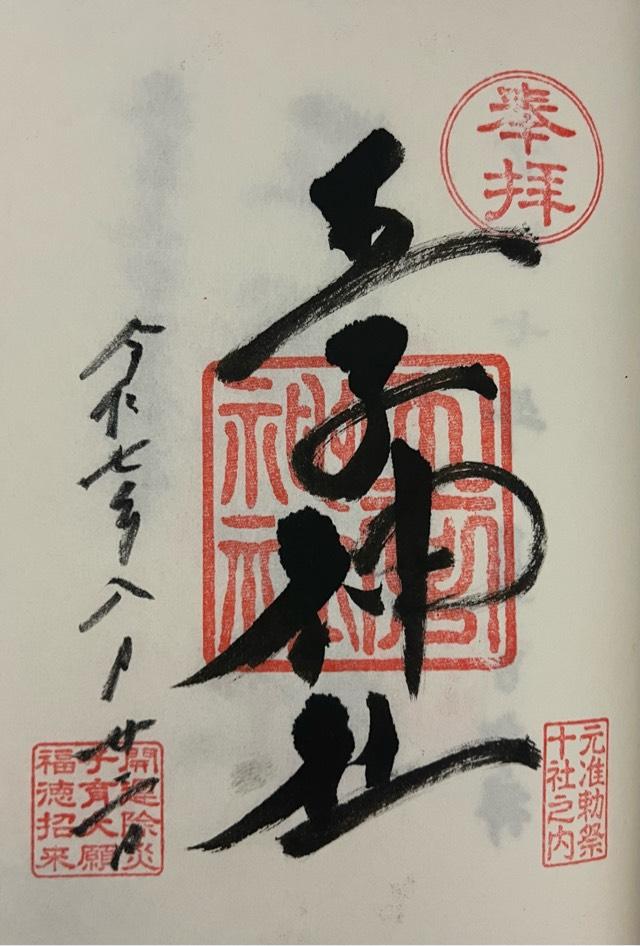 奉拝
元准勅祭
十社之内
王子神社
令和七年八月廿二日
開運除災
子育大願
福徳招来